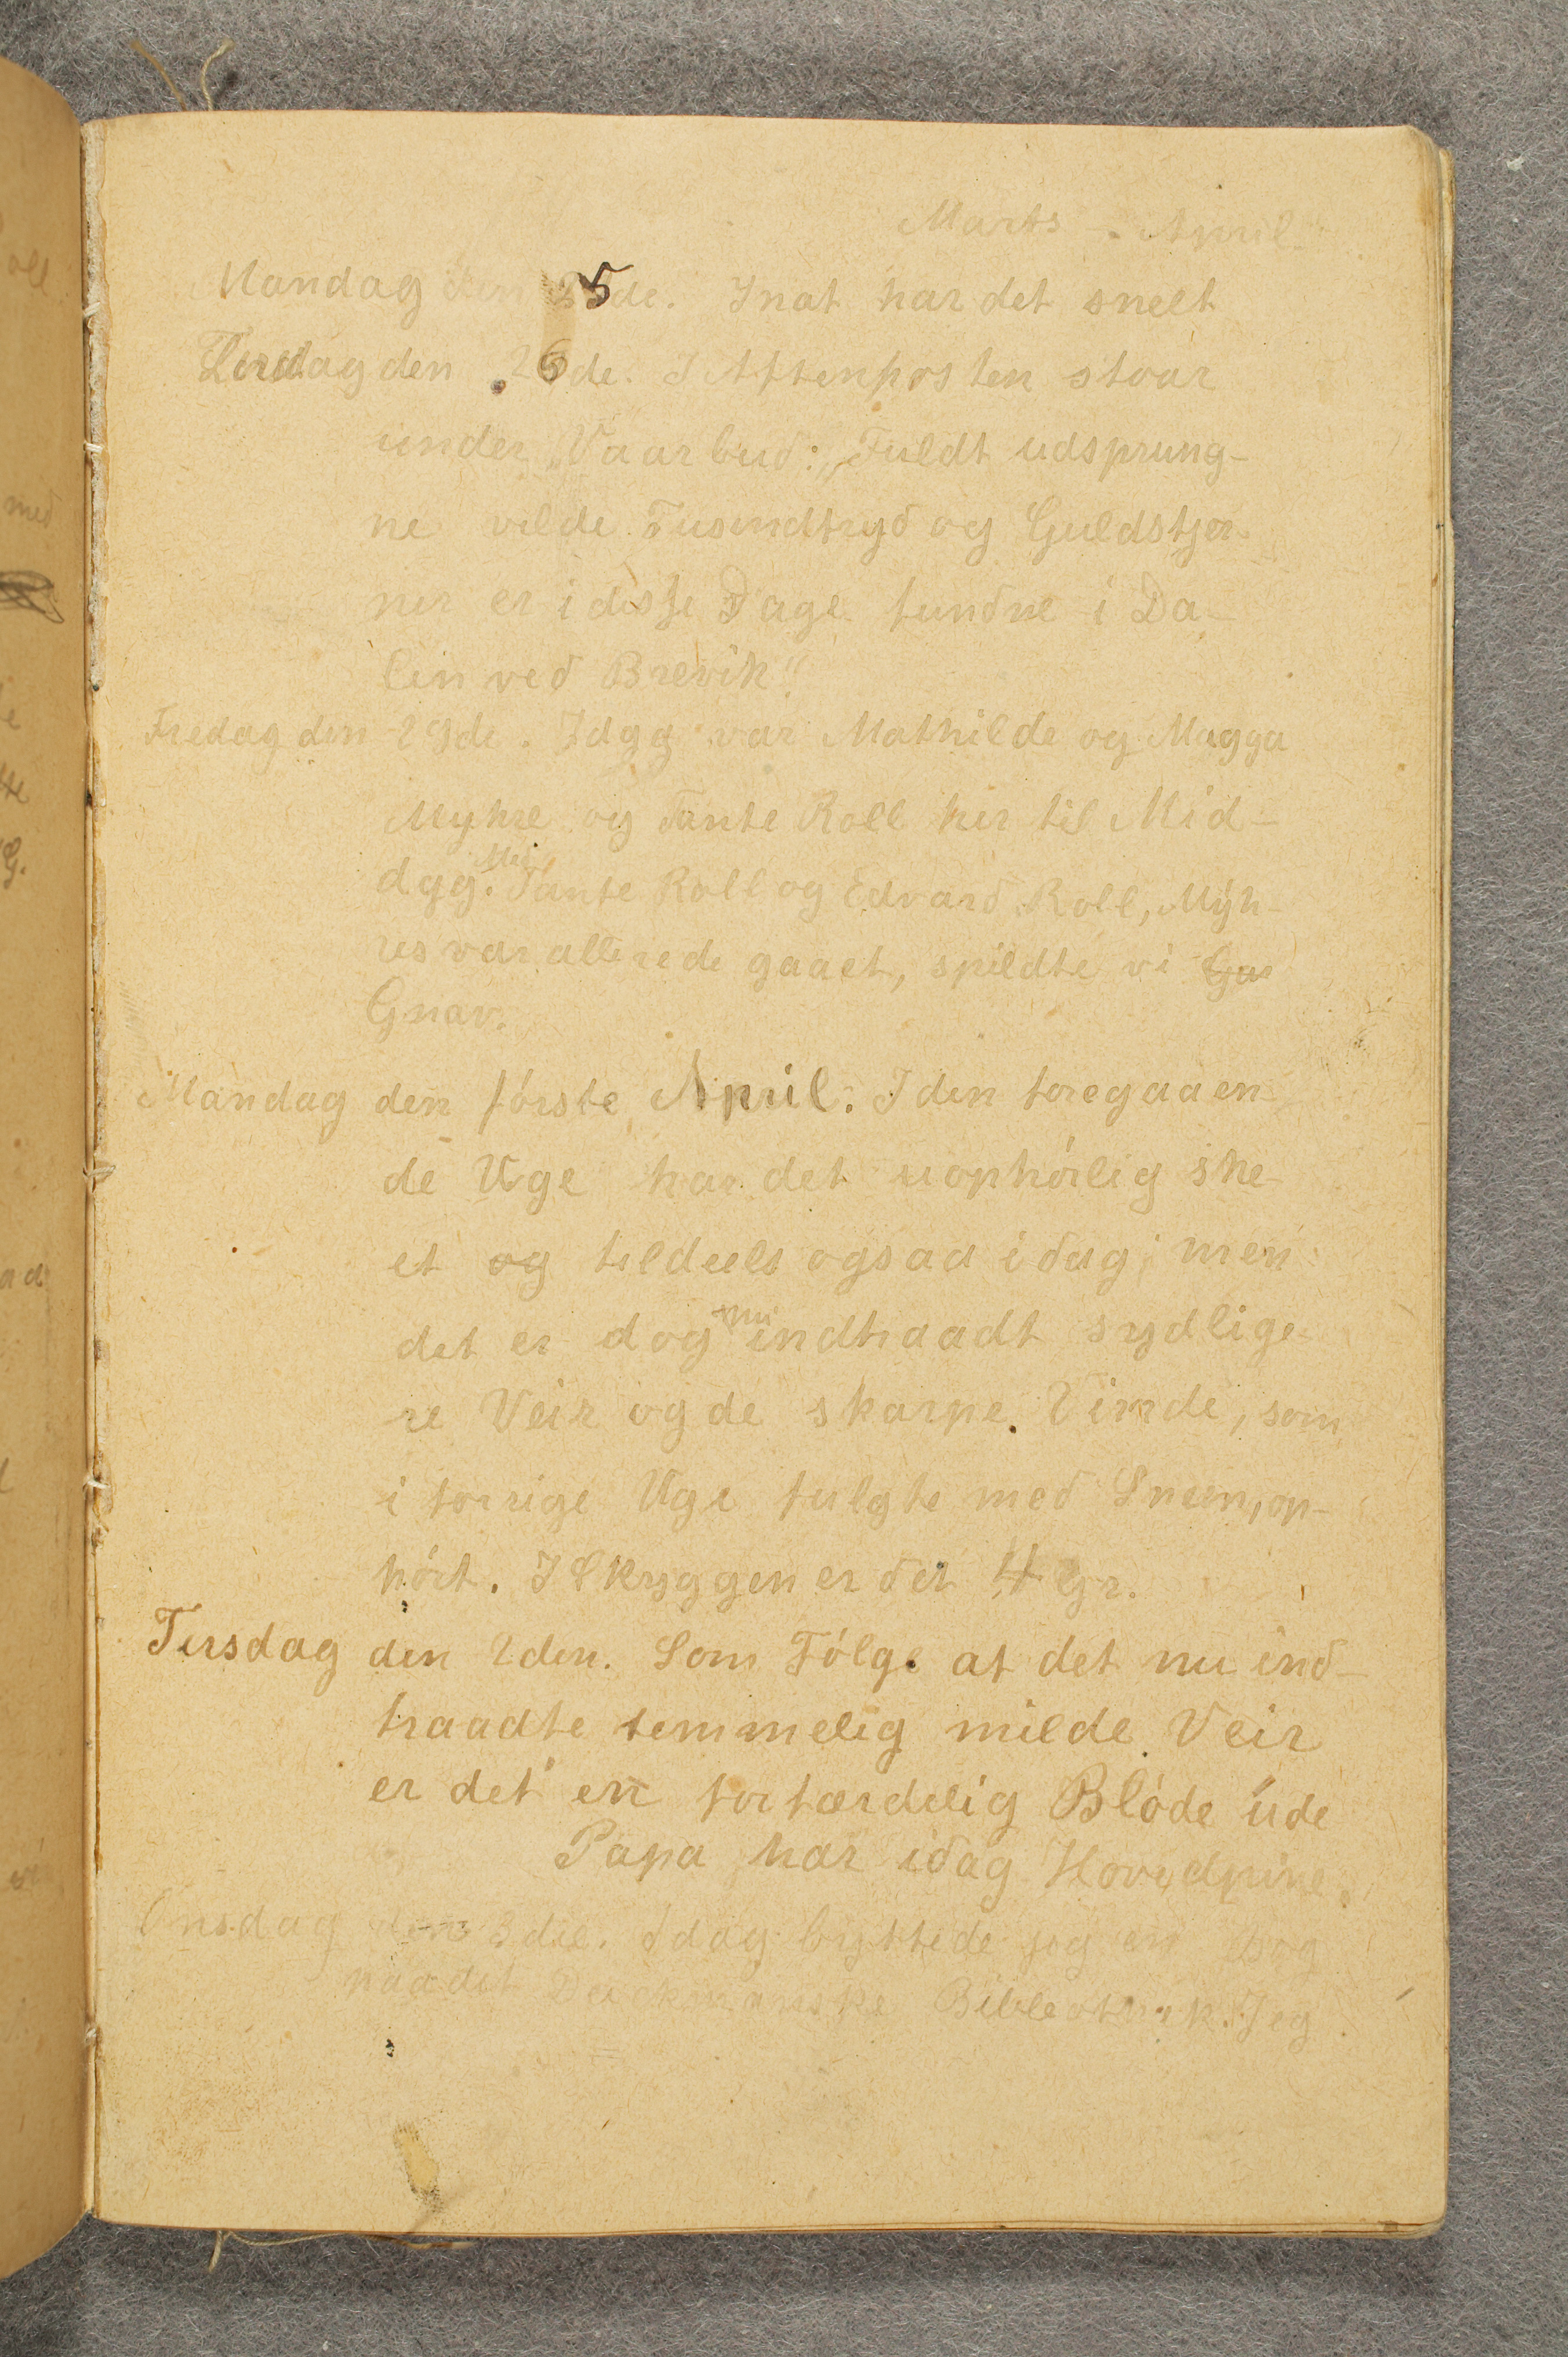 Marts - April
Mandag den 25de. Inat har det sneet
Tirsdag den 26de. I Aftenposten stoar
under „Vaarbud: „Fuldt udsprung-
ne vilde Tusindfryd og Guldstjer-
ner er i disse Dage fundne i Da-
len ved Brevik“.
Fredag den 29de. Idag var Mathilde og Magga
Myhre og Tante Roll her til Mid-
dag. Med Tante Roll og Edvard Roll, Myh-
res var allerede gaaet, spildte vi Ga
Gnav.
Mandag den første April. I den foregaaen-
de Uge har det uophørlig sne-
et og tildeels ogsaa idag; men
det er dog nu indtraadt sydlige-
re Veir og de skarpe Vinde, som
i forrige Uge fulgte med Sneen, op-
hørt. I Skyggen er det 4 Gr.
Tirsdag den 2den. Som Følge at det nu ind-
traadte temmelig milde Veir
er det en forfærdelig Bløde ude
Papa har idag Hovedpine.
Onsdag den 3die. Idag byttede jeg en Bog
paa det Deichmanske Bibliothek. Jeg